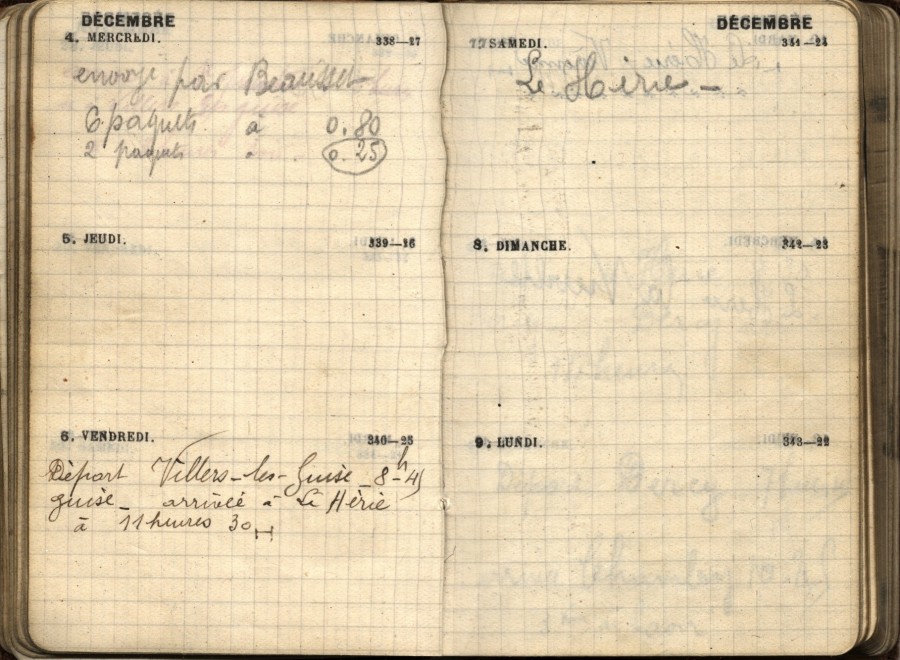 DÉCEMBRE
4. MERCREDI. 338—27
envoyé par Beausset
6 paquets à 0.80
2 paquets - 0.25
5. JEUDI. 339—26
6. VENDREDI. 340—25
Départ Villers-les-Guise - 8h45
guise - arrivée à Le Hérie
à 11 heures 30
DÉCEMBRE
7 SAMEDI. 341—24
Le Hérie -
8. DIMANCHE. 342—23
9. LUNDI. 343—22